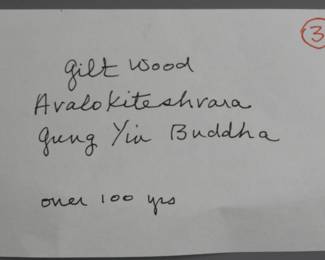 3
gilt wood
Avalokiteshvara
gung Yin Buddha
over 100 yrs